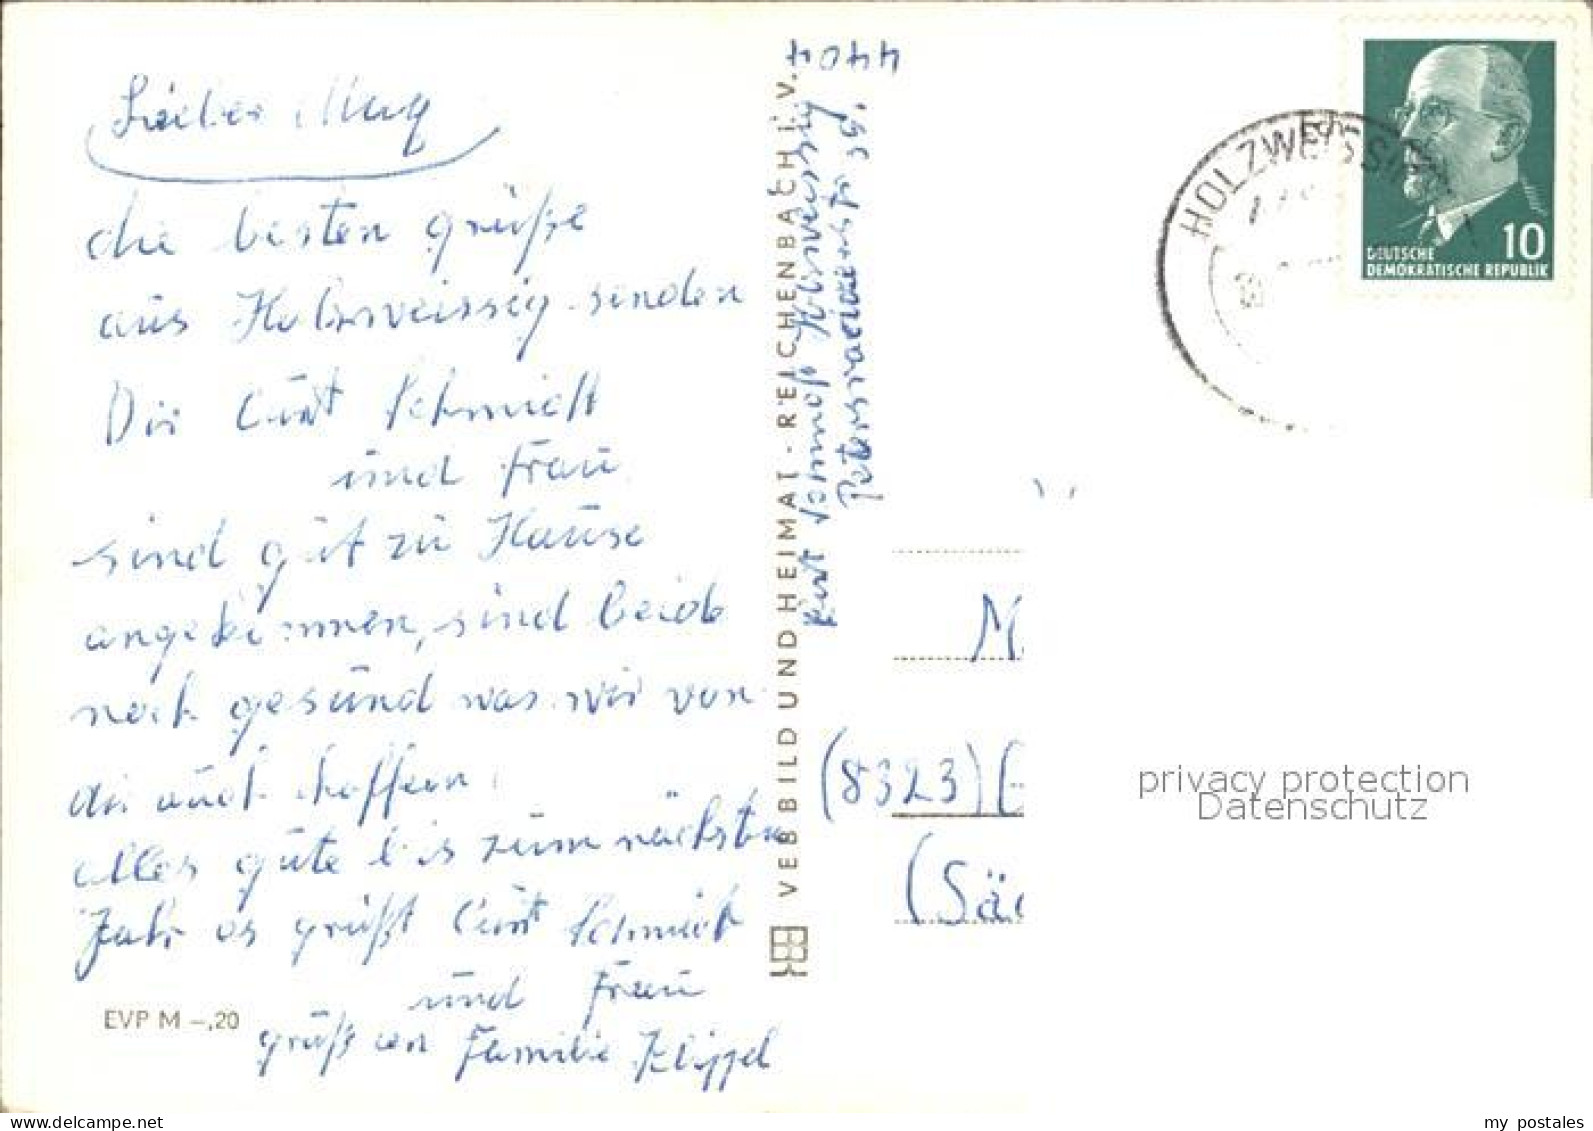 Lieber Max
die besten grüße
aus Holzweissig senden
Dir Curt Schmidt
und Frau
sind gut zu Hause
angekommen, sind beide
noch gesund was wir von
dir auch hoffen
alles gute bis zum nächsten
Jahr es grüßt Curt Schmidt
und Frau
grüß an Familie
EVP M –,20
VEB BILD UND HEIMAT · REICHENBACH I. V.
4404
Holzweissig
HOLZWEISSIG
10
DEUTSCHE
DEMOKRATISCHE REPUBLIK
M
(8323)
(Säc
privacy protection
Datenschutz
delcampe.net
my postales